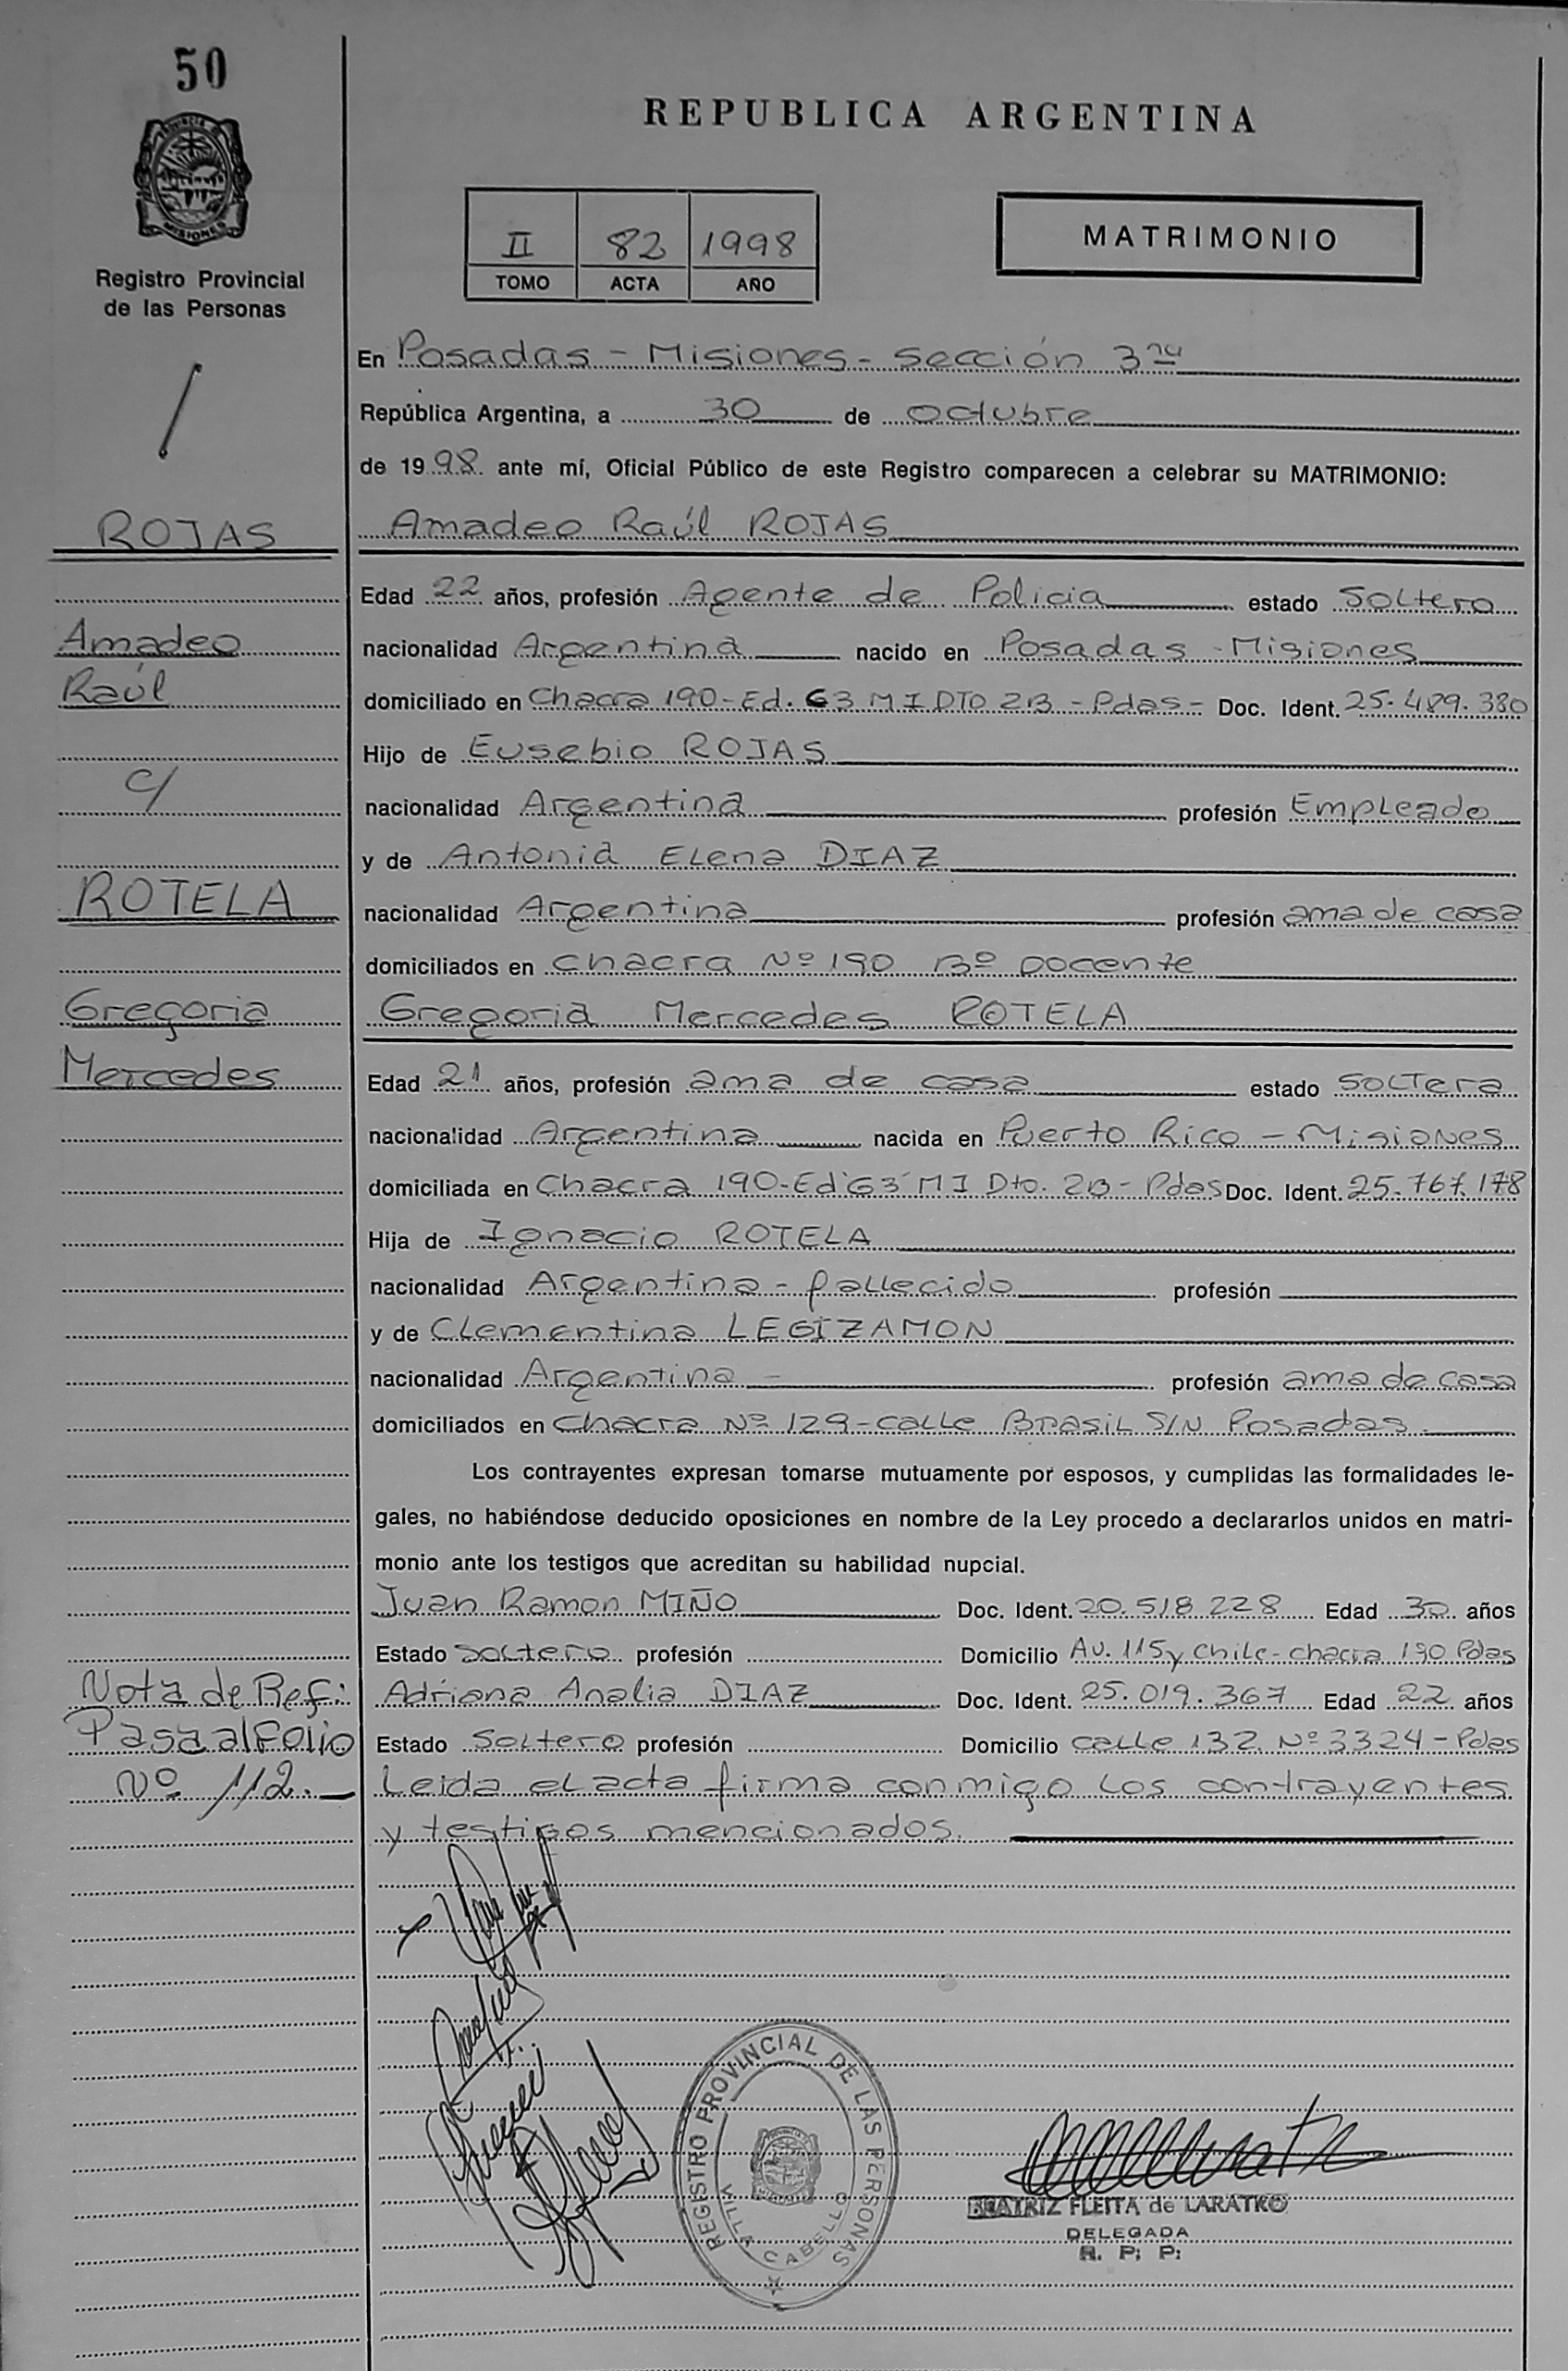 50
REPUBLICA ARGENTINA
PROVINCIA DE
MISIONES
Registro Provincial
de las Personas
II 82 1998
TOMO ACTA AÑO
MATRIMONIO
En Posadas - Misiones - Sección 3ra
República Argentina, a 30 de octubre
de 1998 ante mí, Oficial Público de este Registro comparecen a celebrar su MATRIMONIO:
ROJAS
Amadeo Raúl ROJAS
Edad 22 años, profesión Agente de Policia estado Soltero
Amadeo
nacionalidad Argentina nacido en Posadas - Misiones
Raúl
domiciliado en Chacra 190 - Ed. G3 M I DTO 2B - Pdas - Doc. Ident. 25.489.380
Hijo de Eusebio ROJAS
c/
nacionalidad Argentina profesión Empleado
y de Antonia Elena DIAZ
ROTELA
nacionalidad Argentina profesión ama de casa
domiciliados en Chacra Nº 190 Bº Docente
Gregoria
Gregoria Mercedes ROTELA
Mercedes
Edad 21 años, profesión ama de casa estado soltera
nacionalidad Argentina nacida en Puerto Rico - Misiones
domiciliada en Chacra 190 - Ed G3 M I Dto. 2B - Pdas Doc. Ident. 25.767.178
Hija de Ignacio ROTELA
nacionalidad Argentina - fallecido profesión
y de Clementina LEGIZAMON
nacionalidad Argentina - profesión ama de casa
domiciliados en Chacra Nº 129 - calle Brasil S/N Posadas.
Los contrayentes expresan tomarse mutuamente por esposos, y cumplidas las formalidades le-
gales, no habiéndose deducido oposiciones en nombre de la Ley procedo a declararlos unidos en matri-
monio ante los testigos que acreditan su habilidad nupcial.
Juan Ramon MIÑO Doc. Ident. 20.518.228 Edad 30 años
Estado soltero profesión Domicilio Av. 115 y Chile - chacra 190 Pdas
Nota de Ref:
Adriana Analia DIAZ Doc. Ident. 25.019.367 Edad 22 años
Pasa al Folio
Estado Soltero profesión Domicilio calle 132 Nº 3324 - Pdas
Nº 112.-
Leida el acta firma conmigo los contrayentes
y testigos mencionados.
REGISTRO PROVINCIAL DE LAS PERSONAS
VILLA CABELLO
BEATRIZ FLEITA de LARATRO
DELEGADA
R. P. P.